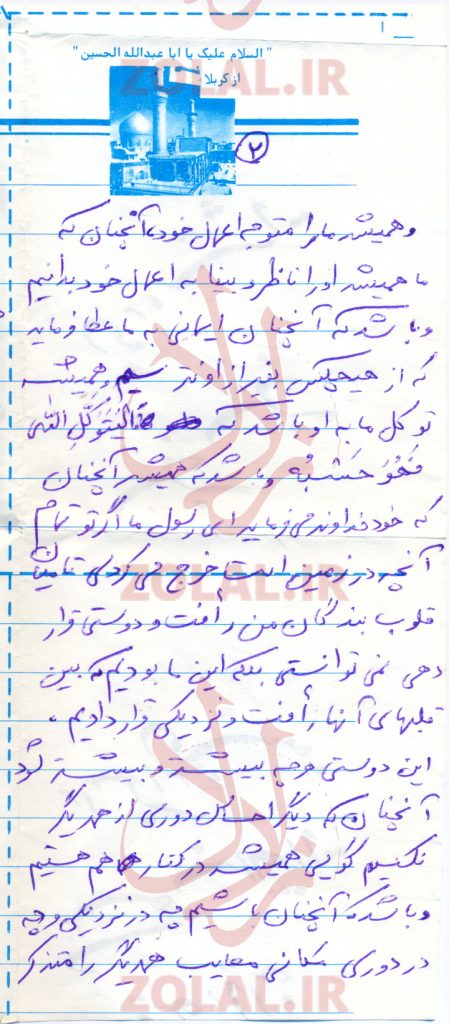 " السلام علیک یا ابا عبدالله الحسین "
از کربلا
۲
و همیشه ما را متوجه اعمال خود، آنچنان که
ما همیشه او را ناظر و بینا به اعمال خود بدانیم
و باشد که آنچنان ایمانی به ما عطا فرماید
که از هیچکس بغیر از او نترسیم و همیشه
توکل ما به او باشد که فالیتوکل الله
فهو حسبه و باشد که همیشه آنچنان
که خود خداوند می فرماید ای رسول ما اگر تو تمام
آنچه در زمین است خرج می کردی تا میان
قلوب بندگان من رأفت و دوستی قرار
دهی نمی توانستی بلکه این ما بودیم که بین
قلبهای آنها رأفت و نزدیکی قرار دادیم .
این دوستی هرچه بیشتر و بیشتر شود
آنچنان که دیگر احساس دوری از همدیگر
نکنیم گویی همیشه در کنار هم هستیم
و باشد که آنچنان باشیم چه در نزدیکی و چه
در دوری مکانی معایب همدیگر را متذکر
ZOLAL.IR
ZOLAL.IR
ZOLAL.IR
زلال
زلال